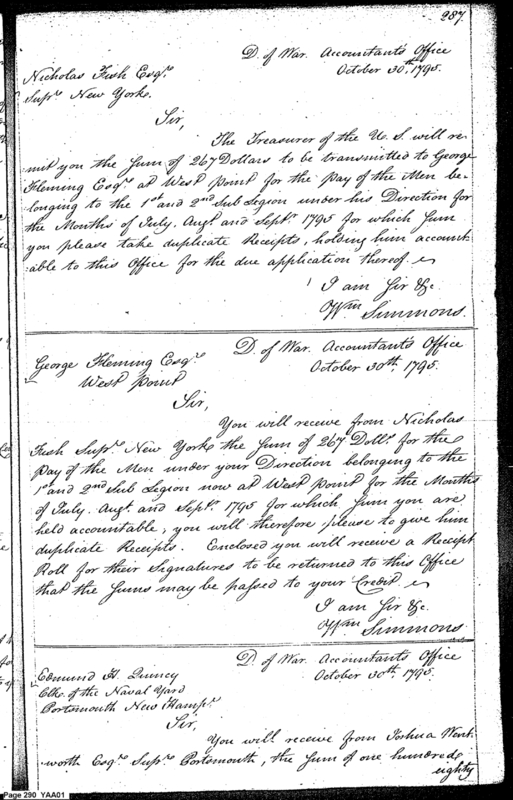 287
D. of War. Accountants Office
October 30th, 1795.
Nicholas Fish Esqr.
Supr. New York.
Sir,
The Treasurer of the U. S. will re-
mit you the Sum of 267 Dollars to be transmitted to George
Fleming Esqr. at West Point for the pay of the Men be-
longing to the 1st and 2nd Sub Legion under his Direction for
the Months of July. Augt. and Septr. 1795 for which Sum
you please take duplicate Receipts, holding him account-
able to this Office for the due application thereof.
I am Sir &c.
Wm Simmons.
D. of War. Accountants Office
October 30th, 1795.
George Fleming Esqr.
West Point
Sir,
You will receive from Nicholas
Fish Supr. New York the Sum of 267 Dolls. for the
pay of the Men under your Direction belonging to the
1st and 2nd Sub Legion now at West Point for the Months
of July. Augt. and Septr. 1795 for which Sum you are
held accountable, you will therefore please to give him
duplicate Receipts. Enclosed you will receive a Receipt
Roll for their Signatures to be returned to this Office
that the Sums may be passed to your Credit.
I am Sir &c.
Wm Simmons
D. of War. Accountants Office
October 30th, 1795.
Edmund H. Quincy
Clk. of the Naval Yard
Portsmouth New Hampr.
Sir,
You will receive from Joshua Went-
worth Esqr. Supr. Portsmouth, the Sum of one hundred
eighty
Page 290 YAA01